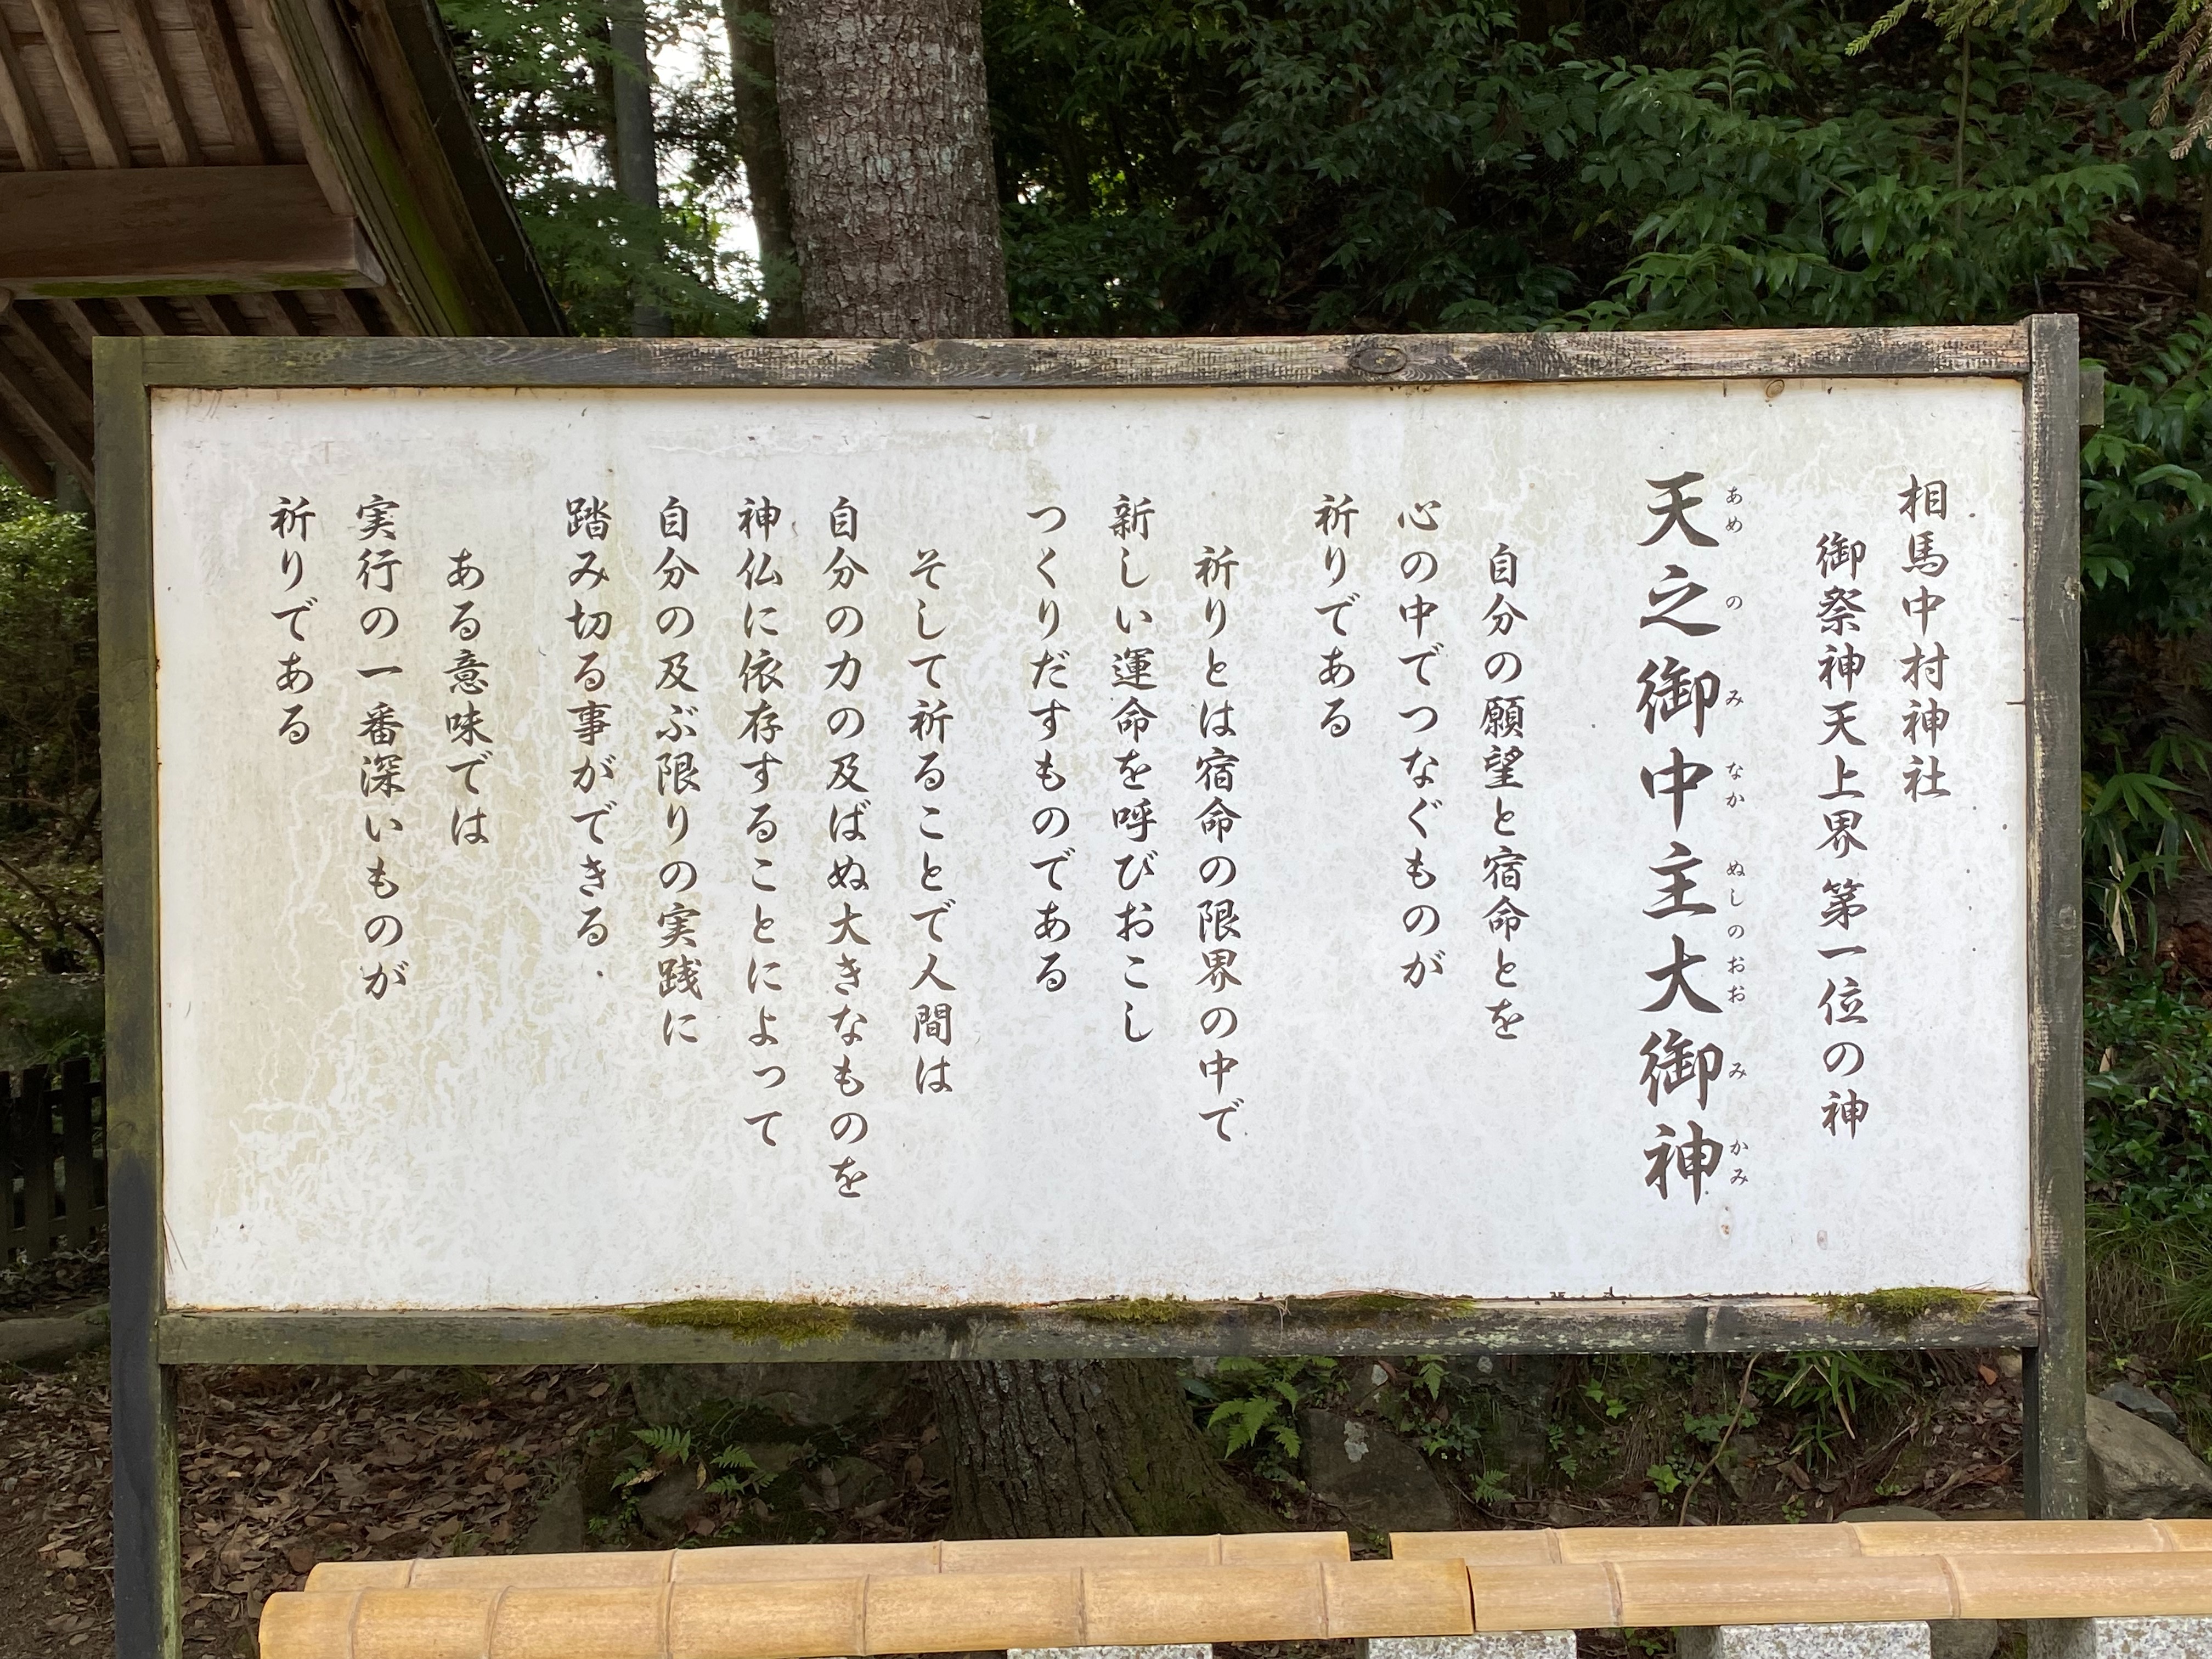 相馬中村神社
御祭神天上界 第一位の神
天之御中主大御神
あめ の み なか ぬしの おお み かみ
自分の願望と宿命とを
心の中でつなぐものが
祈りである
祈りとは宿命の限界の中で
新しい運命を呼びおこし
つくりだすものである
そして祈ることで人間は
自分の力の及ばぬ大きなものを
神仏に依存することによって
自分の及ぶ限りの実践に
踏み切る事ができる
ある意味では
実行の一番深いものが
祈りである